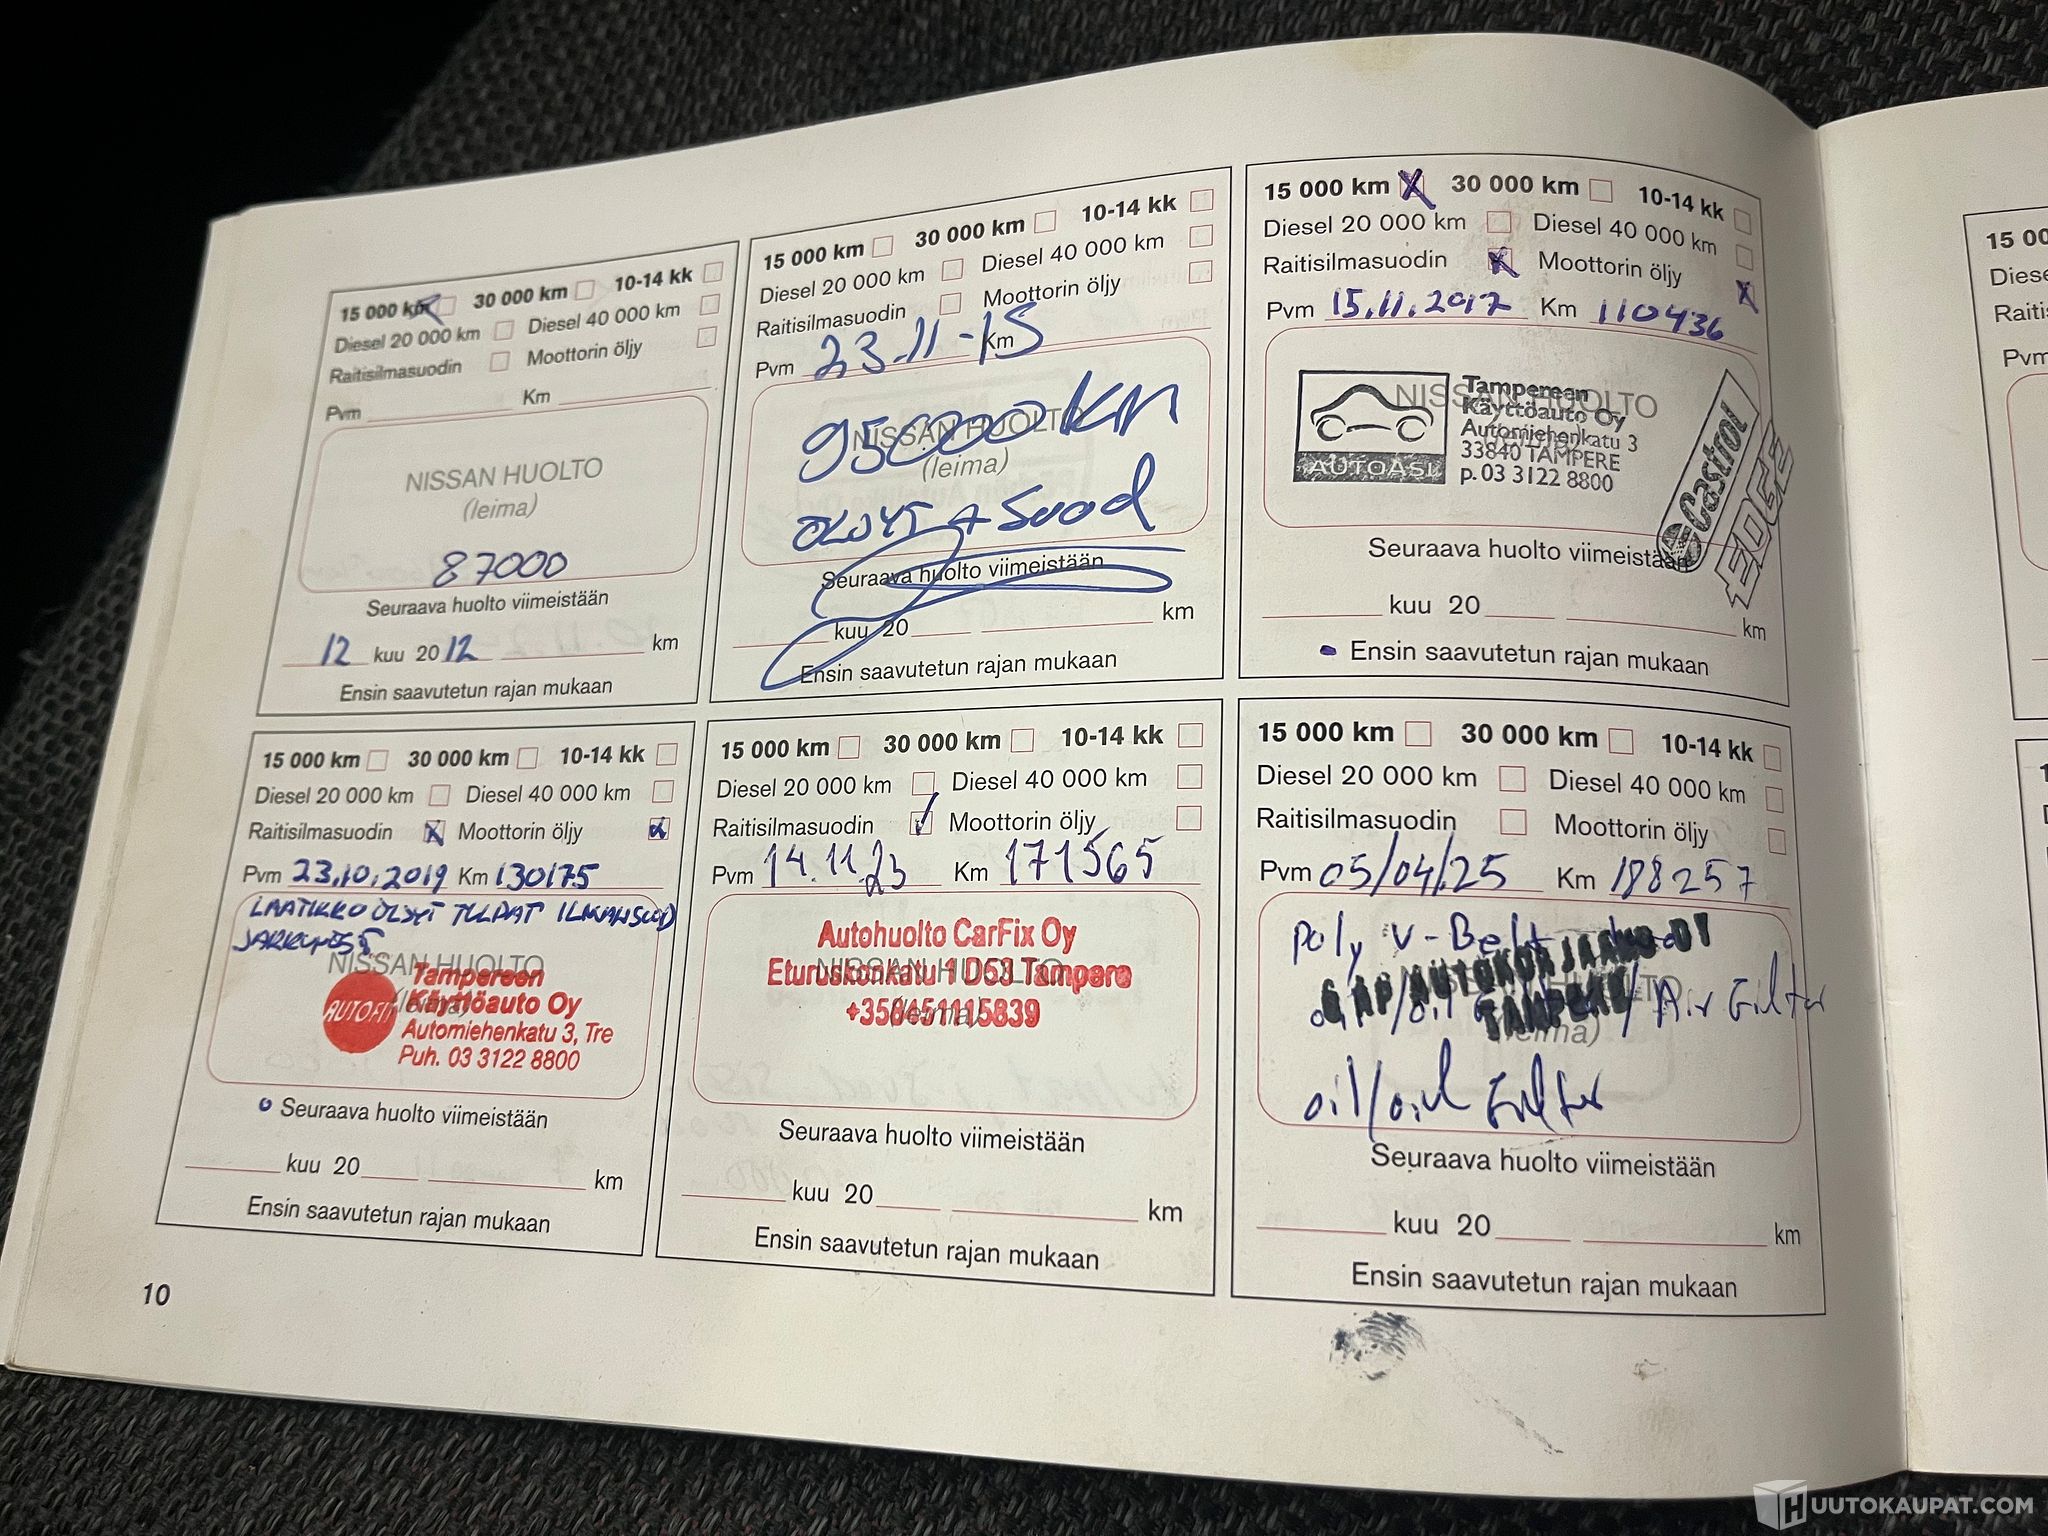 15 000 km 30 000 km 10-14 kk
Diesel 20 000 km Diesel 40 000 km
Raitisilmasuodin Moottorin öljy
Pvm Km
NISSAN HUOLTO
(leima)
87000
Seuraava huolto viimeistään
12 kuu 20 12 km
Ensin saavutetun rajan mukaan
15 000 km 30 000 km 10-14 kk
Diesel 20 000 km Diesel 40 000 km
Raitisilmasuodin Moottorin öljy
Pvm 23.11-15 Km
NISSAN HUOLTO
95000 km
(leima)
ÖLJYT + suod
Seuraava huolto viimeistään
kuu 20 km
Ensin saavutetun rajan mukaan
15 000 km 30 000 km 10-14 kk
Diesel 20 000 km Diesel 40 000 km
Raitisilmasuodin Moottorin öljy
Pvm 15.11.2017 Km 110436
NISSAN HUOLTO
AUTOASI
Tampereen
Käyttöauto Oy
Automiehenkatu 3
33840 TAMPERE
p. 03 3122 8800
Castrol
EDGE
Seuraava huolto viimeistään
kuu 20 km
Ensin saavutetun rajan mukaan
15 000 km 30 000 km 10-14 kk
Diesel 20 000 km Diesel 40 000 km
Raitisilmasuodin Moottorin öljy
Pvm 23.10.2019 Km 130175
LAATIKKOÖLJYT TULPAT ILMANSUOD
NISSAN HUOLTO
(leima)
AUTOFIT
Tampereen
Käyttöauto Oy
Automiehenkatu 3, Tre
Puh. 03 3122 8800
Seuraava huolto viimeistään
kuu 20 km
Ensin saavutetun rajan mukaan
15 000 km 30 000 km 10-14 kk
Diesel 20 000 km Diesel 40 000 km
Raitisilmasuodin Moottorin öljy
Pvm 14.11.23 Km 171565
Autohuolto CarFix Oy
NISSAN HUOLTO
Eturuskonkatu 1 D53 Tampere
+358451115839
(leima)
Seuraava huolto viimeistään
kuu 20 km
Ensin saavutetun rajan mukaan
15 000 km 30 000 km 10-14 kk
Diesel 20 000 km Diesel 40 000 km
Raitisilmasuodin Moottorin öljy
Pvm 05/04/25 Km 188257
poly v-Belt
TAMPERE
Air Filter
(leima)
oil/oil Filter
Seuraava huolto viimeistään
kuu 20 km
Ensin saavutetun rajan mukaan
10
HUUTOKAUPAT.COM